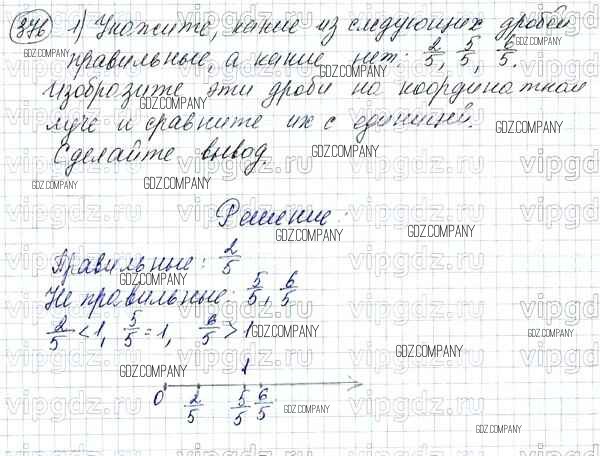 376 1) Укажите, какие из следующих дробей
правильные, а какие нет: 2/5, 5/5, 6/5.
Изобразите эти дроби на координатном
луче и сравните их с единицей.
Сделайте вывод.
Решение:
Правильные: 2/5
Не правильные: 5/5, 6/5
2/5 < 1, 5/5 = 1, 6/5 > 1
1
0 2/5 5/5 6/5
GDZ.COMPANY
vipgdz.ru